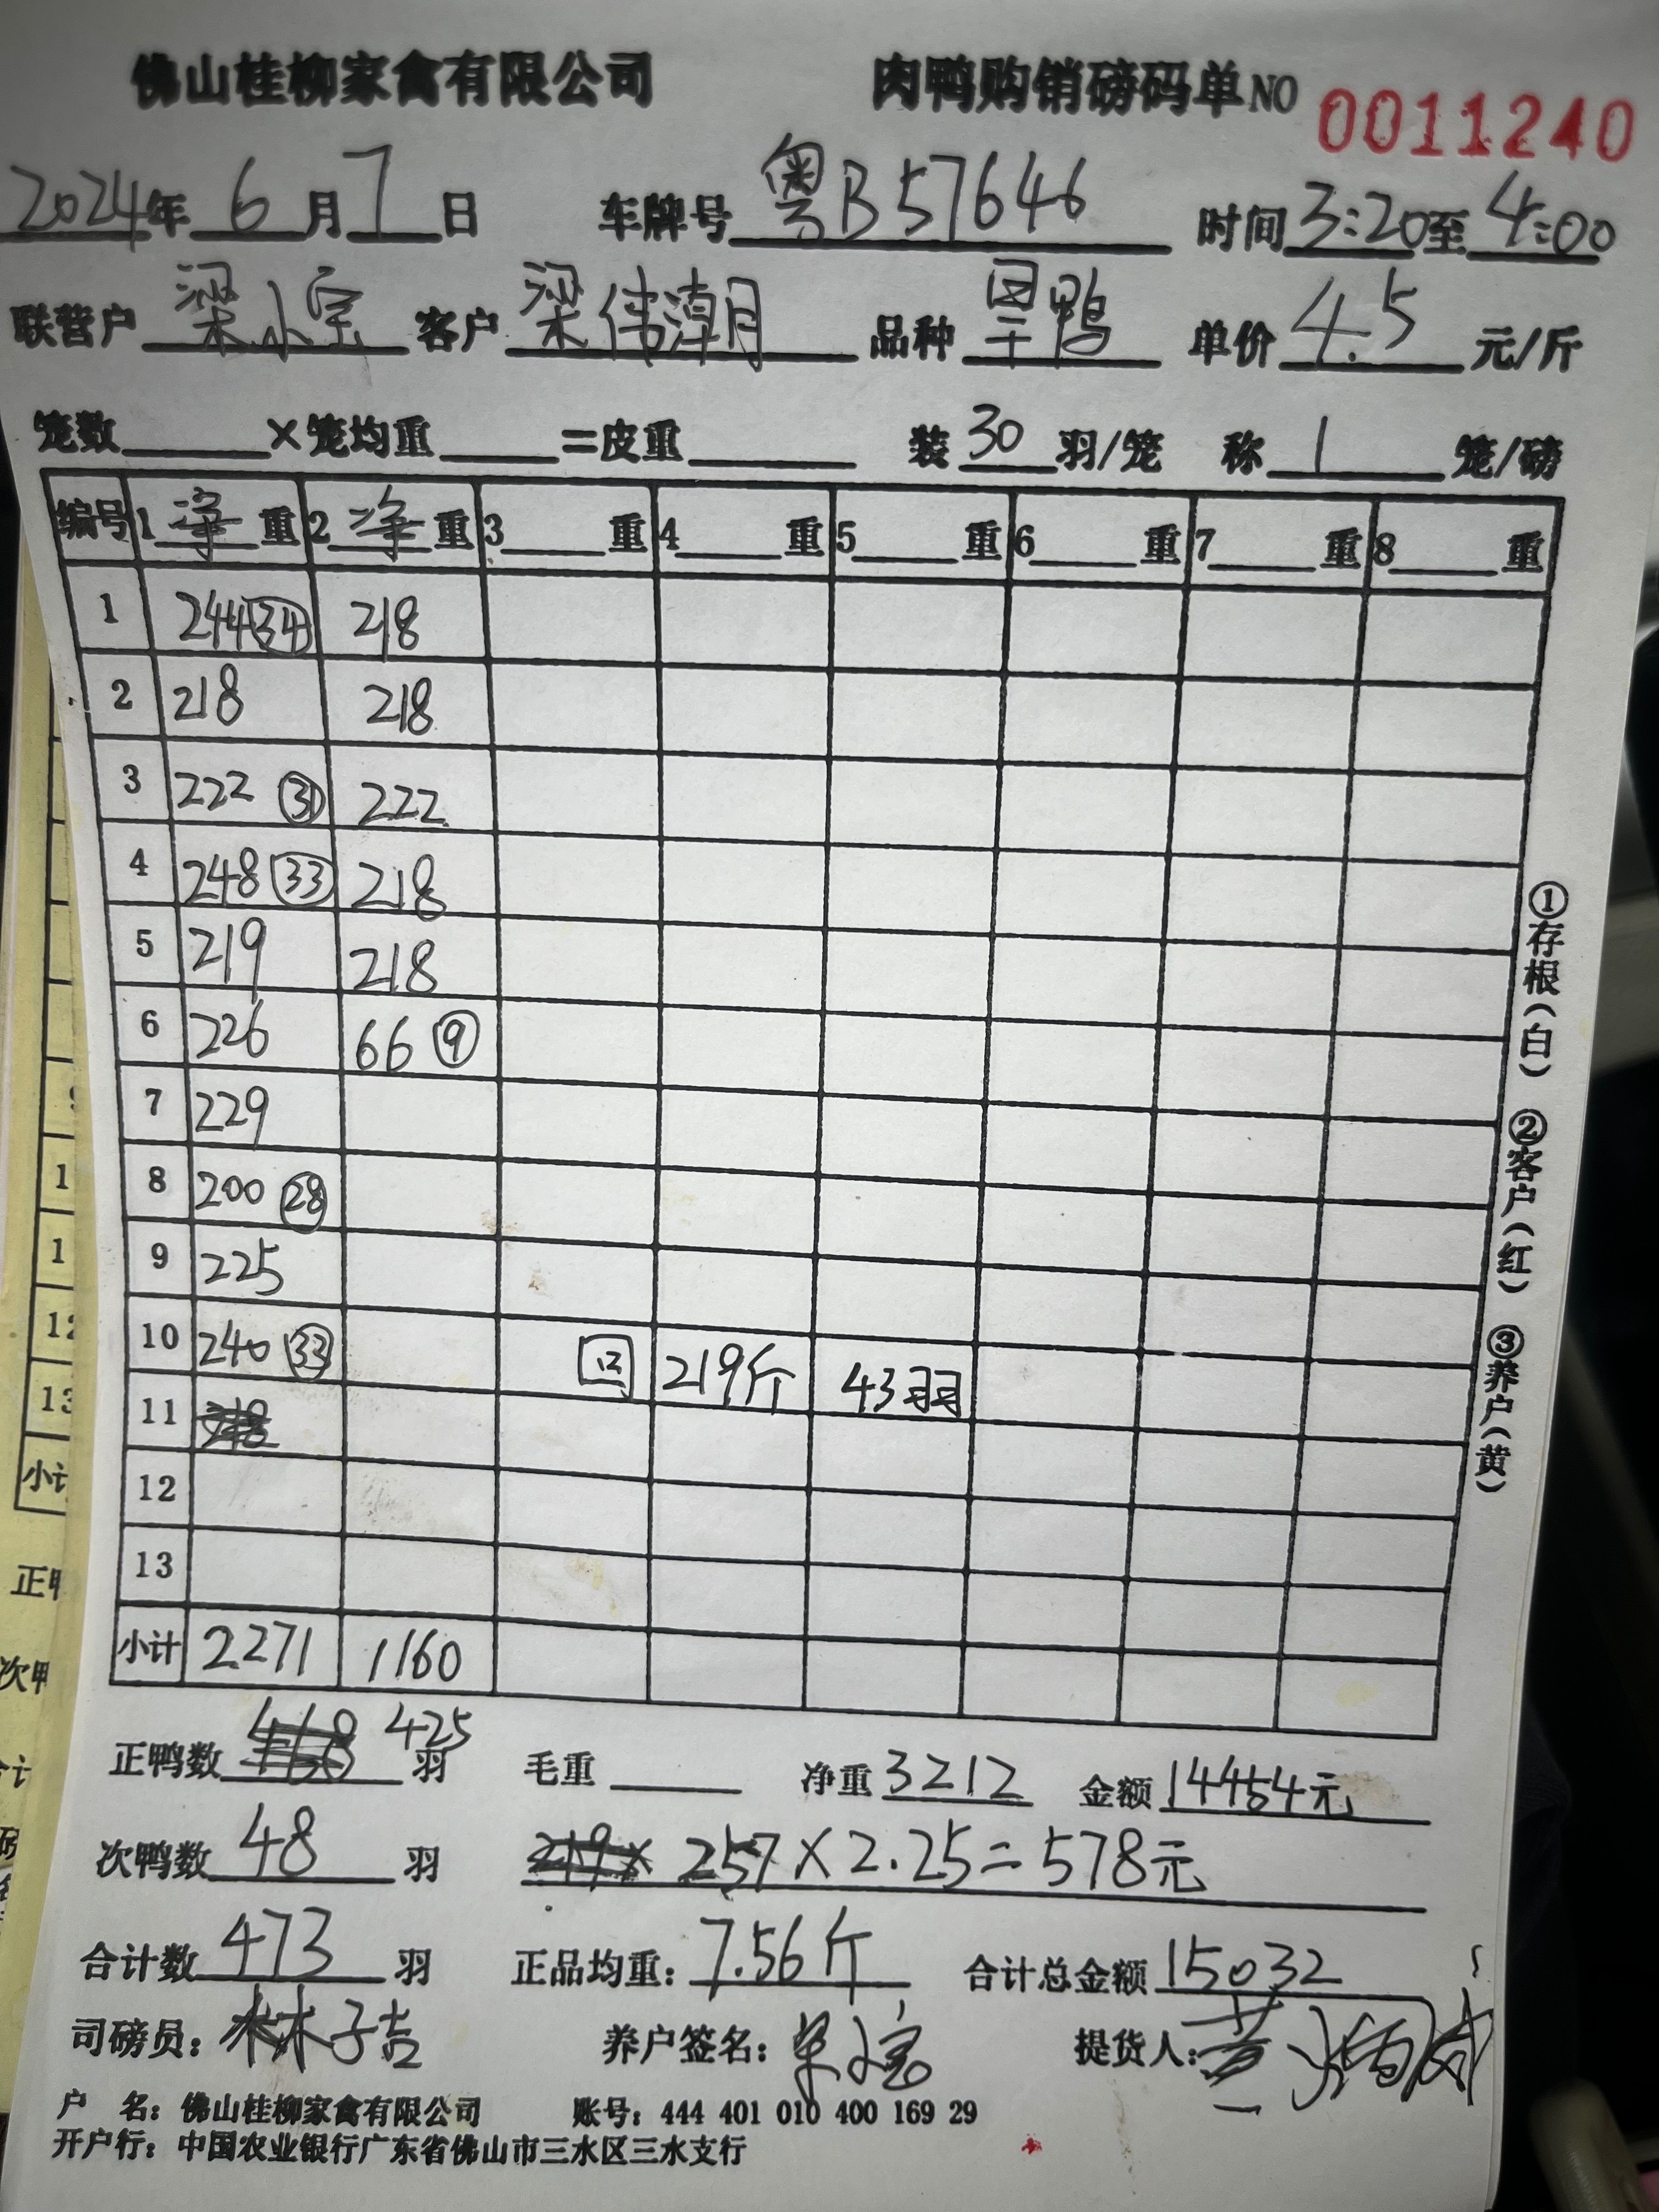 佛山桂柳家禽有限公司 肉鸭购销磅码单 NO 0011240
2024年 6月7日 车牌号 粤B57646 时间 3:20至4:00
联营户 梁小宝 客户 梁伟潮 品种 旱鸭 单价 4.5 元/斤
笼数____×笼均重____=皮重____ 装 30 羽/笼 称 1 笼/磅
编号 1 净 重 2 净 重 3____重 4____重 5____重 6____重 7____重 8____重
1 244 ㉞ 218
2 218 218
3 222 ㉛ 222
4 248 ㉝ 218
5 219 218
6 226 66 ⑨
7 229
8 200 ㉘
9 225
10 240 ㉝ 回 219斤 43羽
11
12
13
小计 2271 1160
正鸭数 425 羽 毛重____ 净重 3212 金额 14454元
次鸭数 48 羽 257×2.25=578元
合计数 473 羽 正品均重: 7.56斤 合计总金额 15032
司磅员: 林子吉 养户签名: 梁小宝 提货人: 黄
户 名: 佛山桂柳家禽有限公司 账号: 444 401 010 400 169 29
开户行: 中国农业银行广东省佛山市三水区三水支行
①存根(白) ②客户(红) ③养户(黄)
1
1
12
13
小计
正鸭
次鸭
合计